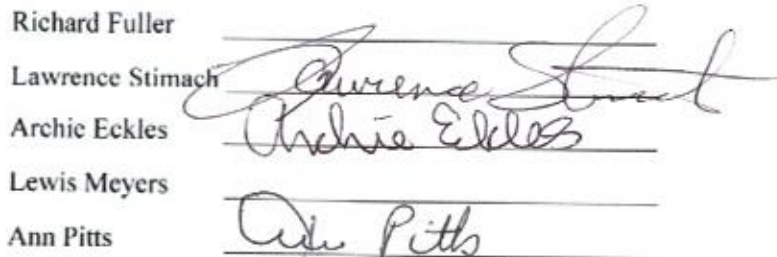 Richard Fuller
Lawrence Stimach Lawrence Stimach
Archie Eckles Archie Eckles
Lewis Meyers
Ann Pitts Ann Pitts